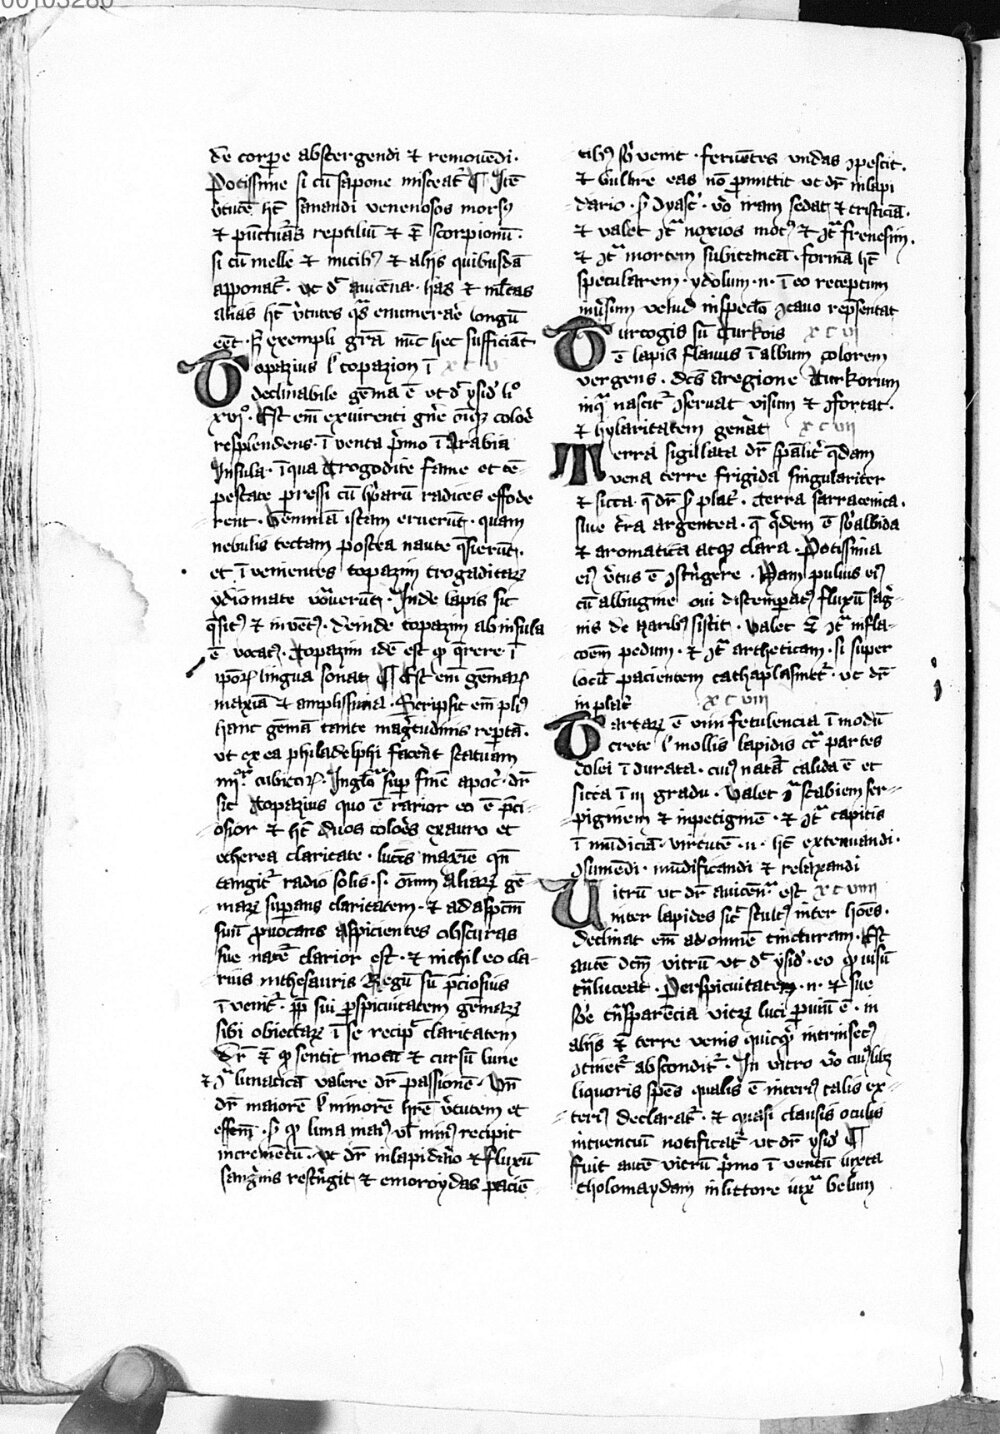 00103280
de corpore abstergendi et remouēdi.
Potissime si cū sapone misceat᷑ ¶ Itē
v̓tutē hꝫ sanandi venenosos morsꝰ
et pūcturas reptiliū et ē scorpionū.
si cū melle et nucibꝰ et alijs quibusdā
apponat᷑. vt dr̄ auicēna. has et ml̄tas
alias hꝫ v̓tutes qͣs enumerare longū
eēt. Sꝫ exempli grā nūc hec sufficiāt
Topazius ł topazion ī xcv
declinabile gēma ē vt dr̄ ysid̓ li°
xvi°. Est em̄ ex virenti gn̄e oīqꝫ colore
resplendens. īventa p̓mo ī Arabia
Insula. ī qua trogodite fame et tē-
pestate pressi cū hͣbarū radices effode
rent. Gēmulā istam eruerūt. quam
nebulis tectam postea naute qͥsierūt.
et īvenientes topazim trogaditaꝝ
ydiomate vocauerūt. Inde lapis sic
qͥsitꝰ et inuētꝰ. deinde topazim ab insula
ē vocatꝰ. Topazim idē est qͥ qͥrere ī
ipoꝝ lingua sonat ¶ Est em̄ gēmaꝝ
maxiā et amplissima. Scripsit em̄ pliꝰ
hanc gēmā tante magͥtudinis reptā.
vt ex ea philadelphi facēt statuam
iiiiᵒʳ cubitoꝝ. In gło sup̄ finē apoc̓. dr̄
sic Topazius quo ē rarior eo ē p̄ci-
osior et hꝫ duos colores ex auro et
etherea claritate. lucēs maxīe qn̄
tangit᷑ radio solis. s. oīm aliaꝝ gē
maꝝ supans claritatem. et ad aspcm̄
suū prouocans aspicientes obscuras
sue nat̓e clarior est. et nichil eo cla-
rius in thesauris Regū sū p̄ciosius
īvenit᷑. pp̄ sui pspicuitatem gēmaꝝ
sibi obiectaꝝ ī se recip̄ claritatem
dr̄ ē qͥ sentit motū et cursū lune
et 9ͣ lunaticā valere dr̄ passionē. Vn̄
dr̄ maiorē ł minorē hr̄e v̓tutem et
effcm̄. sꝫ qͥ luna maiꝰ vł minꝰ recipit
incremētū. vt dr̄ in lapidario et fluxū
sangͥnis restͥngit et emoroydas paciē
tibꝰ subvenit. feruētes vndas 9pescit.
et bullire eas nō pmittit vt dr̄ in lapi
dario. sꝫ dyasc̓. vo iram sedat et tristiciā.
et valet 9tͣ noxios motꝰ et 9tͣ frenesim.
et 9tͣ mortem subitaneā. formā hꝫ
specularem. ydolum. n. ī eo receptum
īuersum velud in spec̄lo 9cauo rep̄sentat
Turcogis siue Turkois xcvi
ē lapis flauus ī album colorem
vergens. dc̄s a regione Turkorum
in qͣ nascit᷑ 9seruat visum et 9fortat.
et hylaritatem gen̄at xcvii
Terra sigillata dr̄ spalit̓ qͥdam
vena terre frigida singulariter
et sicca. q̄ dr̄ sꝫ plat̓. terra sarracenica.
siue tͣra argentea. q̄ qͥdem ē sͣ albida
et aromatica atqꝫ clara. Potissima
eiꝰ v̓tus ē 9stͥngere. Nam puluis eiꝰ
cū albugine oui distempatꝰ fluxū sagͥ-
nis de naribꝰ sistit. Valet ē 9tͣ infla-
coēm pedum. et 9tͣ artheticam. si super
locū pacientem cathaplasmet᷑. vt dr̄
in plat̓ xcviii
Tartaꝝ ē vini fetulencia ī modū
crete ł mollis lapidis cͣ partes
dolei īdurata. cuiꝰ natͣ calida ē et
sicca ī iii gradu. valet 9ͣ scabiem ser-
piginem et inpetiginē. et 9tͣ capitis
īmūdiciā. virtutē. n. hꝫ extenuandi.
9sumēdi. mūdificandi et relaxandi
Vitrū vt dr̄ auicēn̄ est xcviiii
inter lapides sic̓ stultꝰ inter hoēs.
declinat em̄ ad omnē tincturam. Est
autē dcm̄ vitrū vt dr̄ ysid̓. eo qͥ visū
tn̄sluceat. Perspicuitatem. n. et sue
tn̄sparēcia vitꝝ luci pervium ē. in
alijs ē terre venis quicqͥd intrinsecꝰ
9tinet᷑ abscondit᷑. In vitro vo cuiꝰlibꝫ
liquoris spēs qualis ē interiꝰ talis ex-
teriꝰ declarat᷑. et quasi clausis oculis
intuenciū notificat᷑ vt dr̄ ysid̓ ¶
ffuit autē vitrū p̓mo īventū iuxta
tholomaydam in littore iuxͣ belum